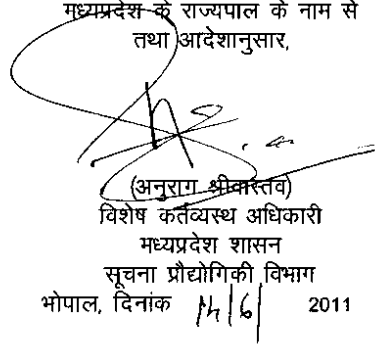 मध्यप्रदेश के राज्यपाल के नाम से
तथा आदेशानुसार,
(अनुराग श्रीवास्तव)
विशेष कर्तव्यस्थ अधिकारी
मध्यप्रदेश शासन
सूचना प्रौद्योगिकी विभाग
भोपाल, दिनांक 14/6/ 2011